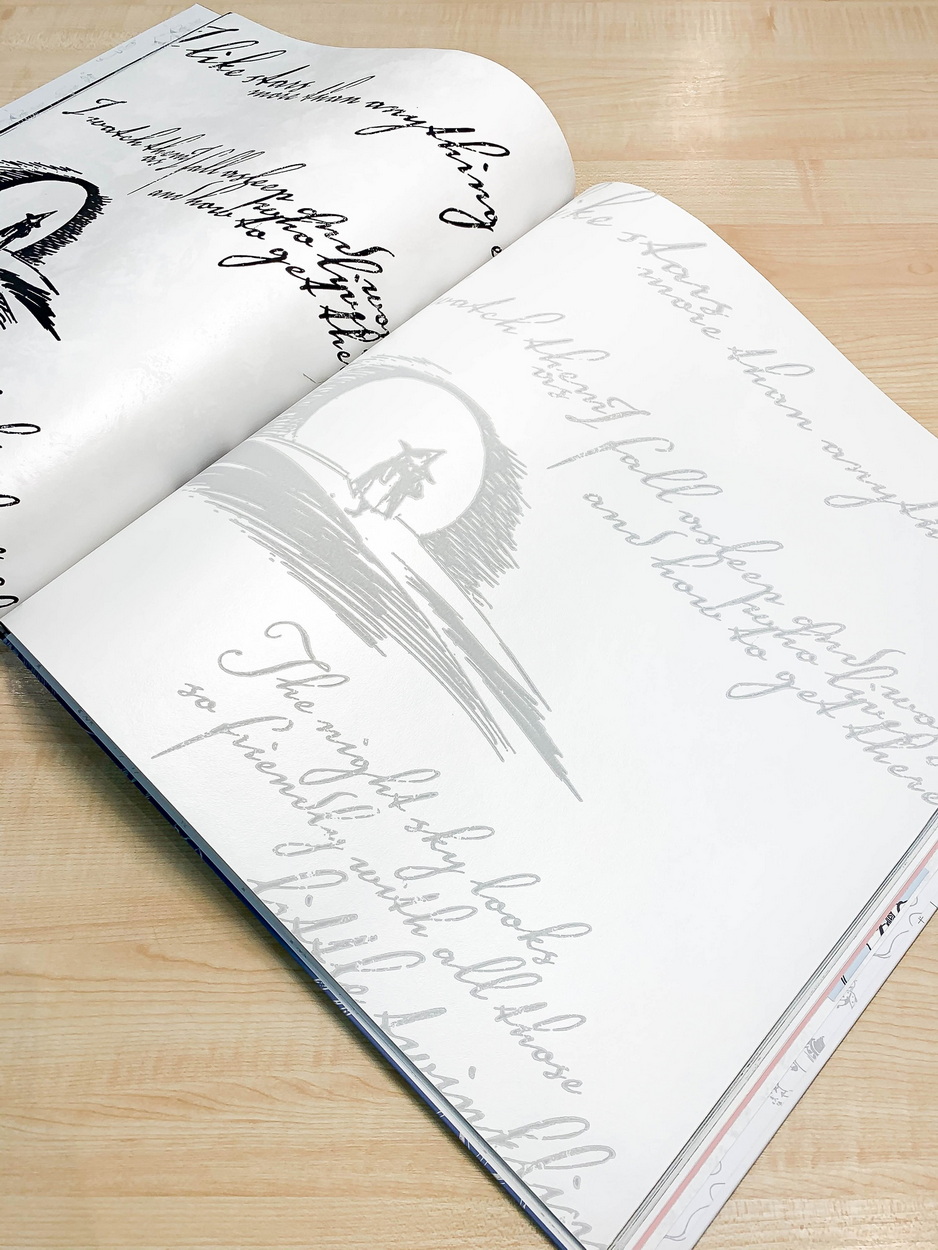 I like stars
more than anything
I watch them
as I fall asleep and wo
who lives
and how to get the
like stars
more than anythi
watch them
as I fall asleep and wo
who lives
and how to get there
The night sky looks
so friendly with all those
little twinklin